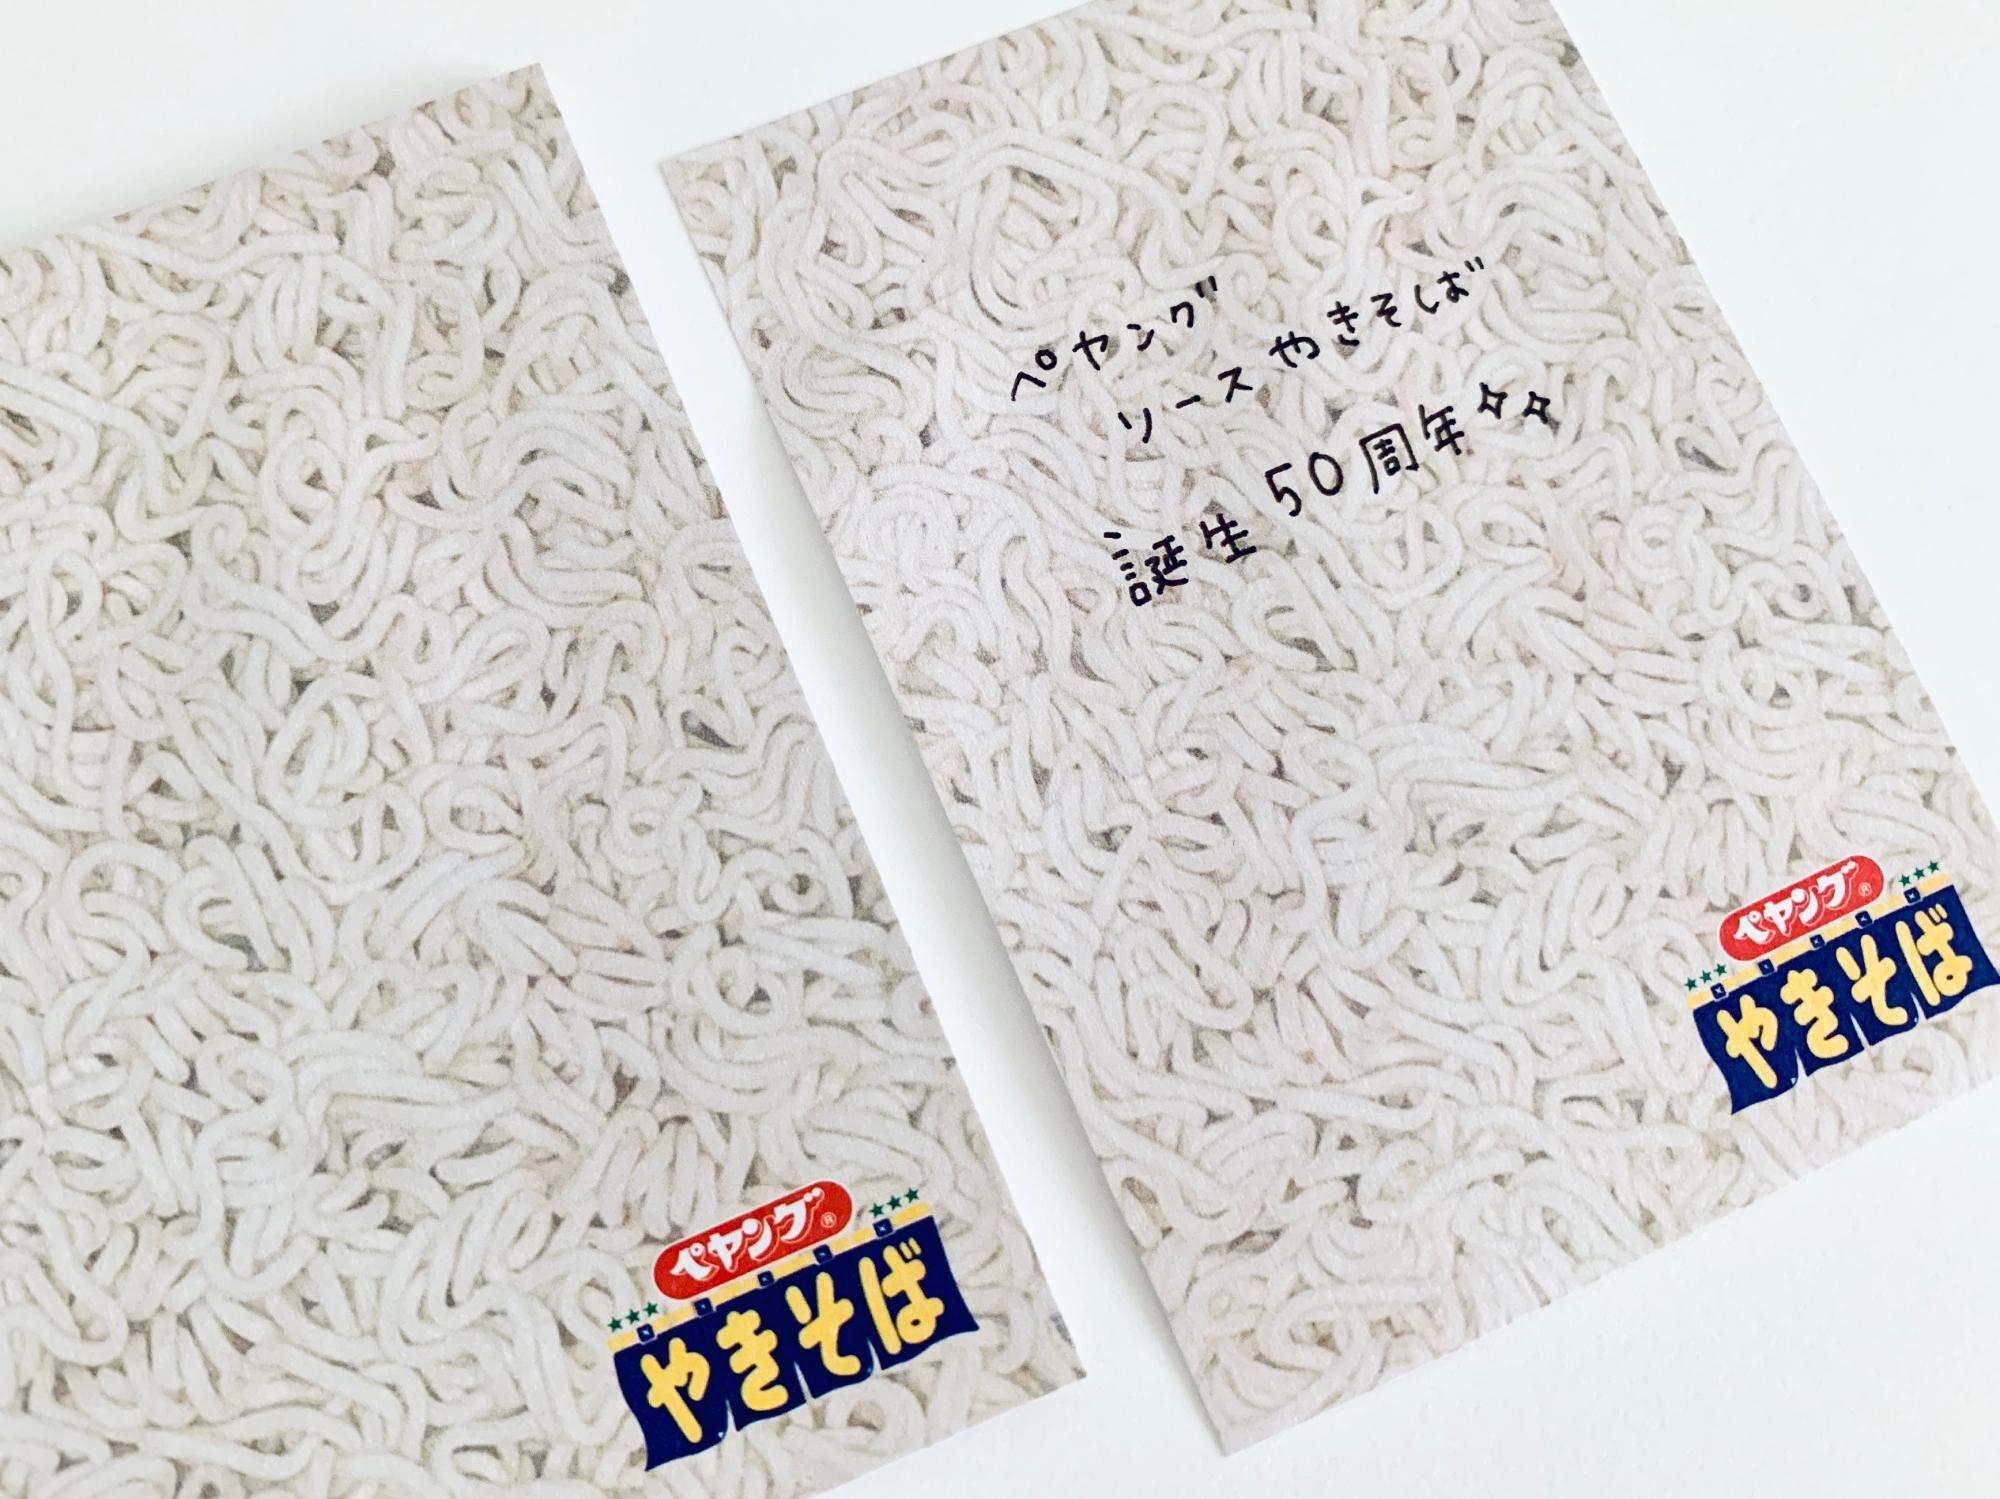 ペヤング
ソースやきそば
誕生50周年
ペヤング®
やきそば
ペヤング®
やきそば